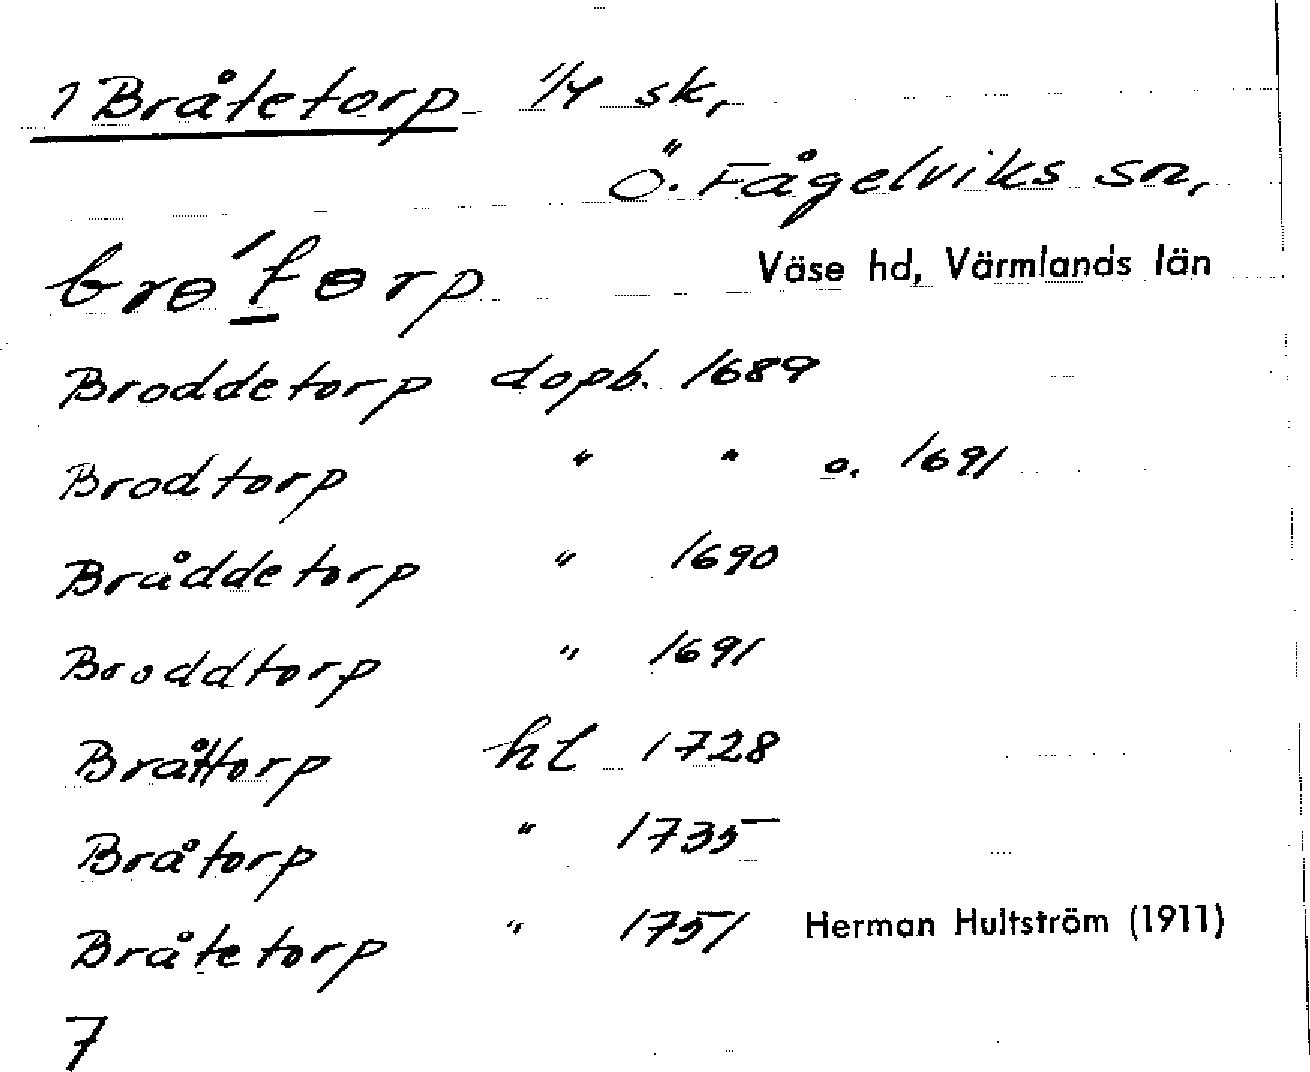 1 Bråtetorp 1/4 sk,
Ö. Fågelviks sn,
Väse hd, Värmlands län
Broddetorp dopb. 1689
Brodtorp " " o. 1691
Bråddetorp " 1690
Broddtorp " 1691
Bråttorp hl 1728
Bråtorp " 1735
Bråtetorp " 1751 Herman Hultström (1911)
7